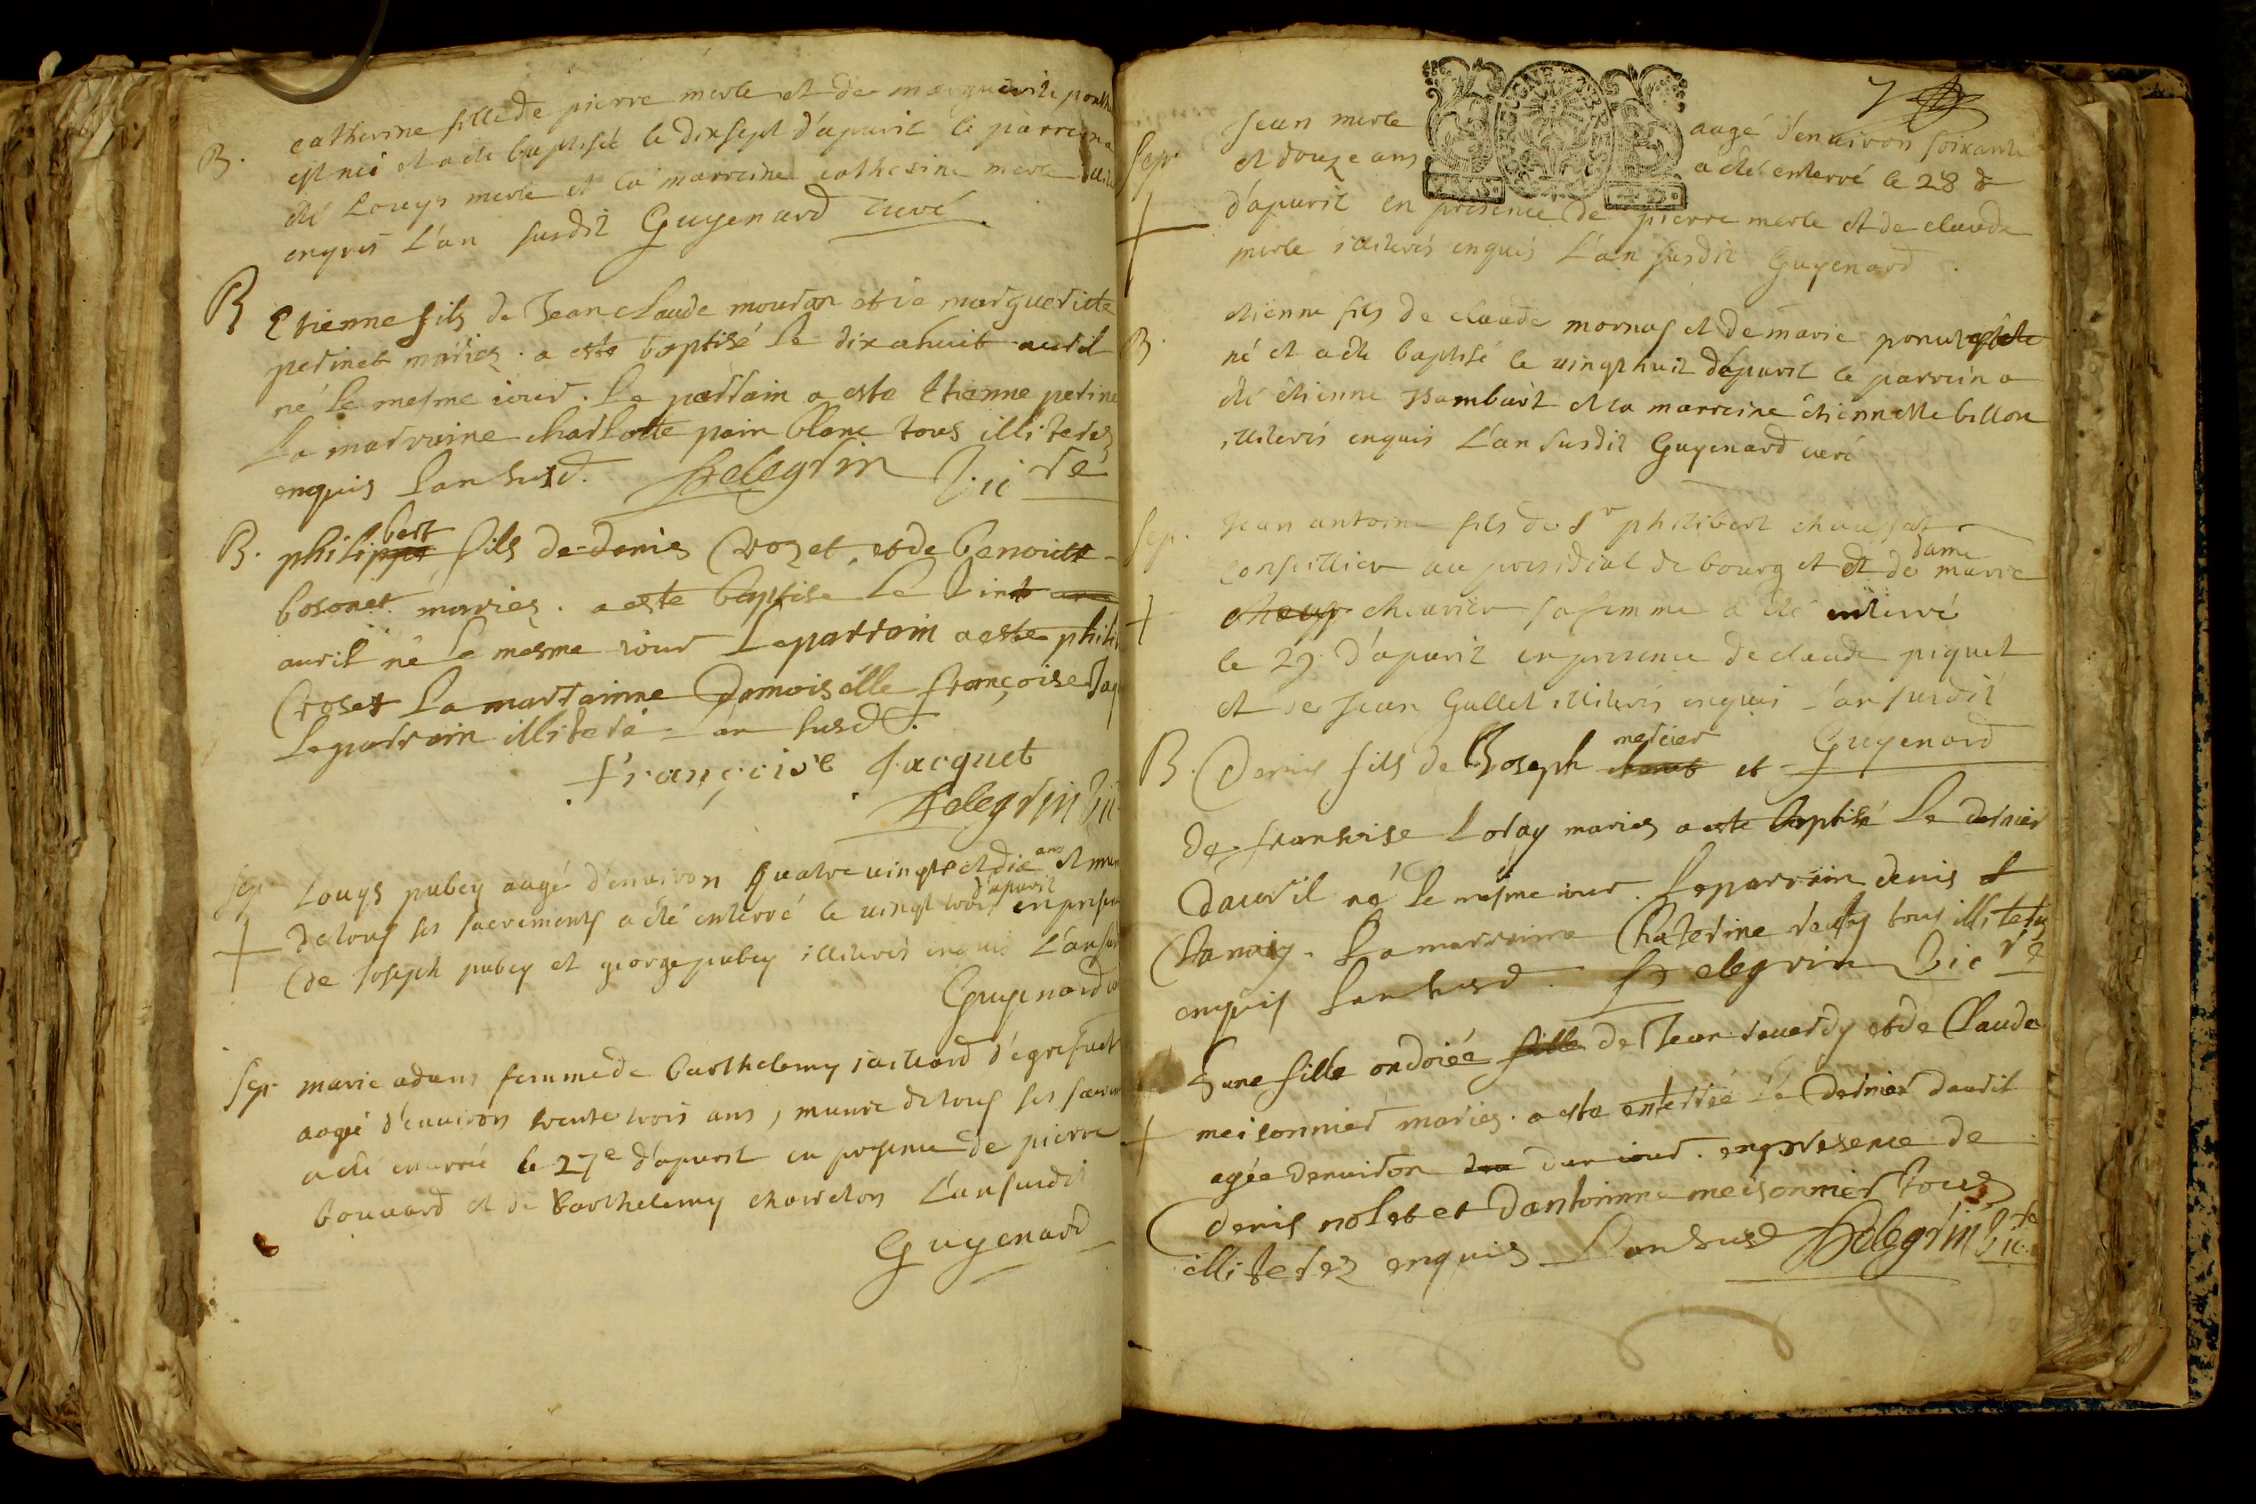 B. catherine fille de pierre merle et de marguerite
est née et a été baptisée le dixsept d'apuril le parrein a
été Louys merle et la marreine catherine merle
enquis L'an susdit Guyenard curé
B Etienne fils de Jean claude mouran et de marguerite
perinet mariez . a esté baptisé le dix ahuit auril
né le mesme iour . Le parrain a esté Etienne perine
La marraine charlotte pain blanc tous illiterez
enquis Lan susd. Pelegrin Vicre
B. philipbert fils de denis Crozet et de benoiste
bosonet mariez . a esté baptisé Le vint
auril né le mesme iour Le parrain a esté phili
Croset La marrainne Damoiselle françoise Jaq
Le parrain illiteré Lan susd.
françoise Jacquet
Pelegrin Vic
Sep. Louys pubey aagé d'enuiron quatre uingt et dix ans et mun
de tous ses sacrements a été enterré le uingt trois d'apuril en presen
de Joseph pubey et george pubey illiterés enquis L'an sus
Guyenard
Sep. marie adam femme de barthelemy iaillard d'egrefueil
aagée d'enuiron trente trois ans, munie de tous ses sacrem
a été enterrée le 27e d'apuril en presence de pierre
bouuard et de barthelemy chaureton L'an susdit
Guyenard
7
Sep. Jean merle aagé d'enuiron soixante
et douze ans a été enterré le 28 e
d'apuril en presence de pierre merle et de claude
merle illiterés enquis L'an susdit Guyenard
B. etienne fils de claude mornas et de marie
né et a été baptisé le uingt huit d'apuril le parrein a
été étienne Vambert et la marreine étiennette billon
illiterés enquis L'an susdit Guyenard curé
Sep. Jean antoine fils de Sr philibert chaussat
conseillier au presidial de bourg et de dame marie
cheurier sa femme a été enterré
le 29 d'apuril en presence de claude piquet
et de Jean Gallet illiterés enquis L'an susdit
Guyenard
B. Denis fils de Joseph mercier et
de franhoise Loray mariez a esté baptisé Le dernier
dauril né le mesme iour . Le parrain denis
Danoiy . La marraine Chaterine tous illiterez
enquis Lan susd . Pelegrin Vicre
une fille ondoiée fille de Jean reuerdy et de Claude
meisonnier mariez . a esté enterrée le dernier dauril
agée denuiron dun iour . en presence de
Denis nolet et dantoinne meisonnier tous
illiterez enquis Lan susd Pelegrin Vicre